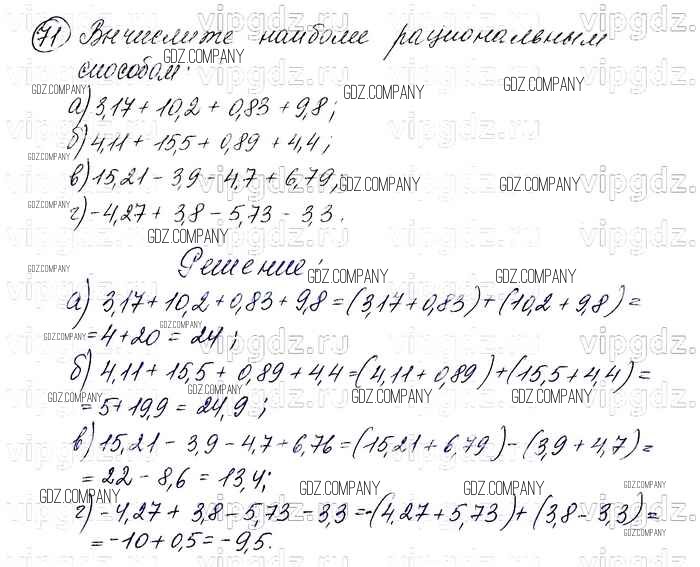 71 Вычислите наиболее рациональным
способом:
а) 3,17 + 10,2 + 0,83 + 9,8;
б) 4,11 + 15,5 + 0,89 + 4,4;
в) 15,21 - 3,9 - 4,7 + 6,79;
г) -4,27 + 3,8 - 5,73 - 3,3.
Решение:
а) 3,17 + 10,2 + 0,83 + 9,8 = (3,17 + 0,83) + (10,2 + 9,8) =
= 4 + 20 = 24;
б) 4,11 + 15,5 + 0,89 + 4,4 = (4,11 + 0,89) + (15,5 + 4,4) =
= 5 + 19,9 = 24,9;
в) 15,21 - 3,9 - 4,7 + 6,76 = (15,21 + 6,79) - (3,9 + 4,7) =
= 22 - 8,6 = 13,4;
г) -4,27 + 3,8 - 5,73 - 3,3 = -(4,27 + 5,73) + (3,8 - 3,3) =
= -10 + 0,5 = -9,5.
GDZ.COMPANY
vipgdz.ru